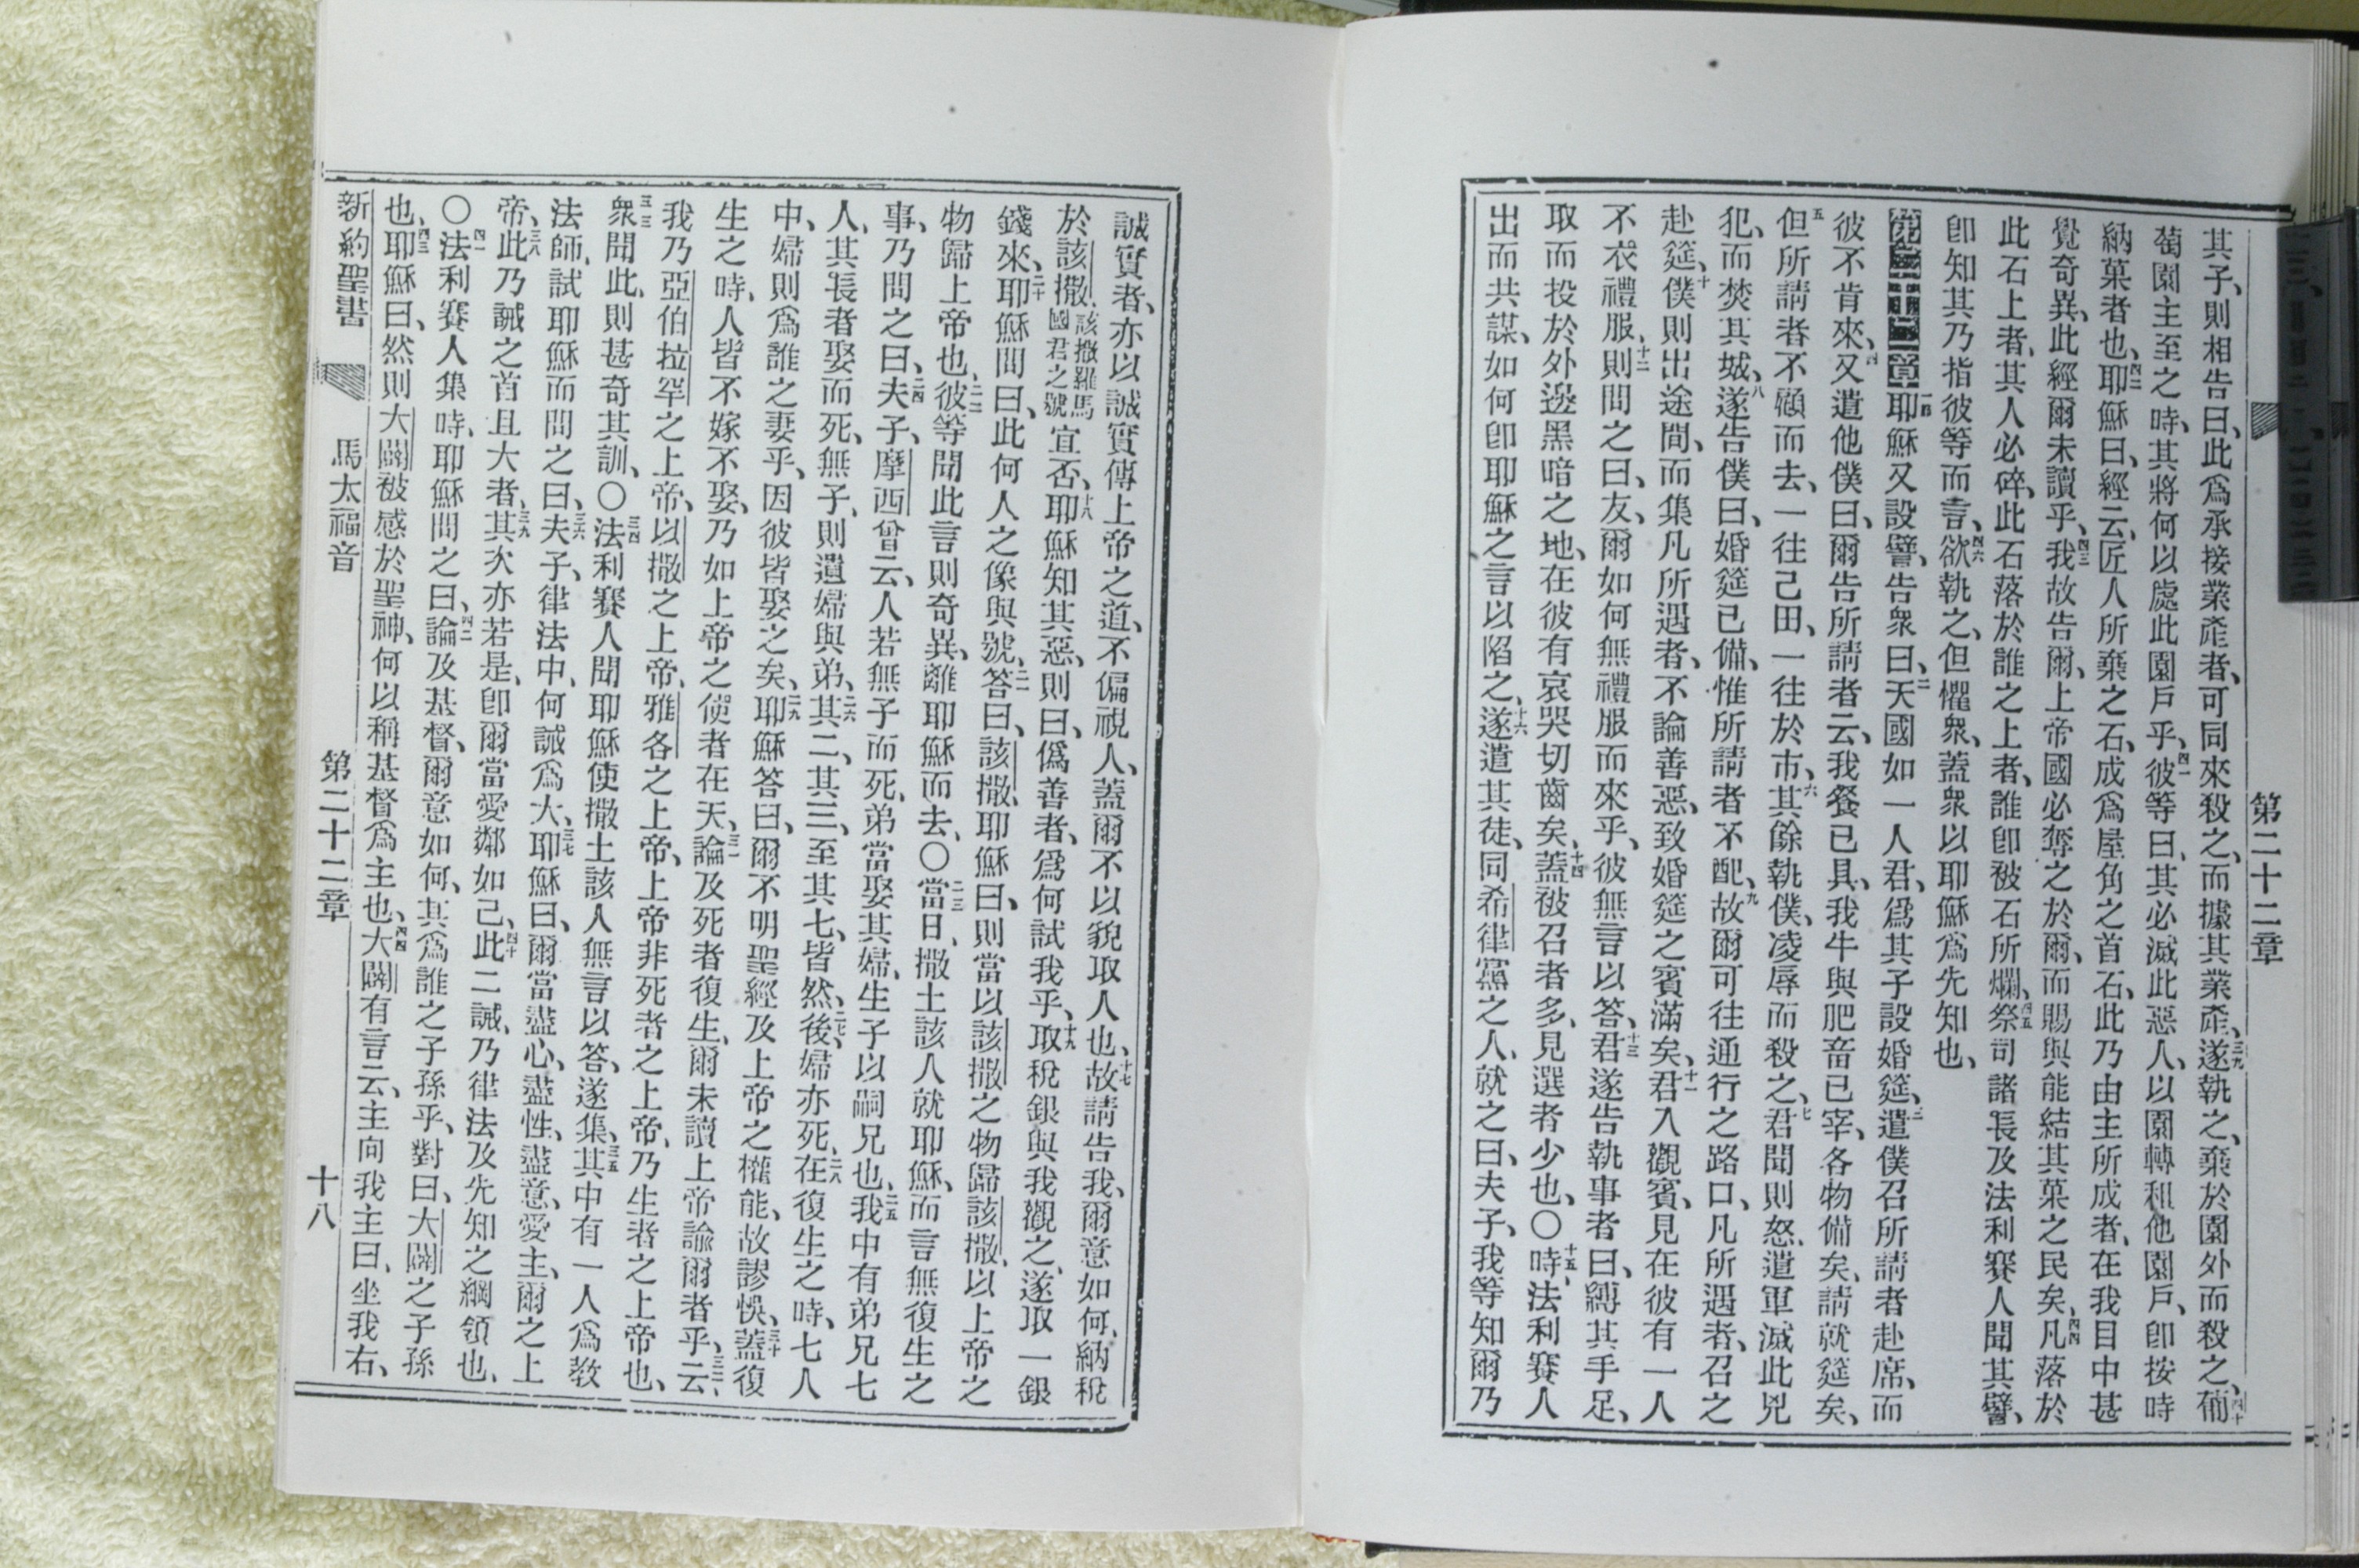 第二十二章
其子、則相告曰、此爲承接業產者、可同來殺之、而據其業產、三九遂執之、棄於園外而殺之、四十葡
萄園主至之時、其將何以處此園戶乎、四一彼等曰、其必滅此惡人、以園轉租他園戶、卽按時
納菓者也、四二耶穌曰、經云、匠人所棄之石、成爲屋角之首石、此乃由主所成者、在我目中甚
覺奇異、此經爾未讀乎、四三我故告爾、上帝國必奪之於爾、而賜與能結其菓之民矣、四四凡落於
此石上者、其人必碎、此石落於誰之上者、誰卽被石所爛、四五祭司諸長及法利賽人聞其譬、
卽知其乃指彼等而言、四六欲執之、但懼衆、蓋衆以耶穌爲先知也、
第二十二章一耶穌又設譬、告衆曰、二天國如一人君、爲其子設婚筵、三遣僕召所請者赴席、而
彼不肯來、四又遣他僕曰、爾告所請者云、我餐已具、我牛與肥畜已宰、各物備矣、請就筵矣、
五但所請者不願而去、一往己田、一往於市、六其餘執僕、凌辱而殺之、七君聞則怒、遣軍滅此兇
犯、而焚其城、八遂告僕曰、婚筵已備、惟所請者不配、九故爾可往通行之路口、凡所遇者、召之
赴筵、十僕則出途間、而集凡所遇者、不論善惡、致婚筵之賓滿矣、十一君入觀賓、見在彼有一人
不衣禮服、十二則問之曰、友、爾如何無禮服而來乎、彼無言以答、十三君遂告執事者曰、縛其手足、
取而投於外邊黑暗之地、在彼有哀哭切齒矣、十四蓋被召者多、見選者少也、〇十五時、法利賽人
出而共謀、如何卽耶穌之言以陷之、十六遂遣其徒、同希律黨之人、就之曰、夫子、我等知爾乃
誠實者、亦以誠實傳上帝之道、不偏視人、蓋爾不以貌取人也、十七故請告我、爾意如何、納稅
於該撒、該撒羅馬國君之號宜否、十八耶穌知其惡、則曰、僞善者、爲何試我乎、十九取稅銀與我觀之、遂取一銀
錢來、二十耶穌問曰、此何人之像與號、二一答曰、該撒、耶穌曰、則當以該撒之物歸該撒、以上帝之
物歸上帝也、二二彼等聞此言則奇異、離耶穌而去、〇二三當日、撒土該人就耶穌、而言無復生之
事、乃問之曰、二四夫子、摩西曾云、人若無子而死、弟當娶其婦、生子以嗣兄也、二五我中有弟兄七
人、其長者娶而死、無子、則遺婦與弟、二六其二、其三、至其七、皆然、二七後、婦亦死、二八在復生之時、七人
中、婦則爲誰之妻乎、因彼皆娶之矣、二九耶穌答曰、爾不明聖經及上帝之權能、故謬悞、三十蓋復
生之時、人皆不嫁不娶、乃如上帝之使者在天、三一論及死者復生、爾未讀上帝諭爾者乎、三二云、
我乃亞伯拉罕之上帝、以撒之上帝、雅各之上帝、上帝非死者之上帝、乃生者之上帝也、
三三衆聞此、則甚奇其訓、〇三四法利賽人聞耶穌使撒土該人無言以答、遂集、三五其中有一人爲敎
法師、試耶穌而問之曰、三六夫子、律法中、何誡爲大、三七耶穌曰、爾當盡心、盡性、盡意、愛主、爾之上
帝、三八此乃誡之首且大者、三九其次亦若是、卽爾當愛鄰如己、四十此二誡、乃律法及先知之綱領也、
〇四一法利賽人集時、耶穌問之曰、四二論及基督、爾意如何、其爲誰之子孫乎、對曰、大闢之子孫
也、四三耶穌曰、然則大闢被感於聖神、何以稱基督爲主也、四四大闢有言云、主向我主曰、坐我右、
新約聖書 馬太福音 第二十二章 十八